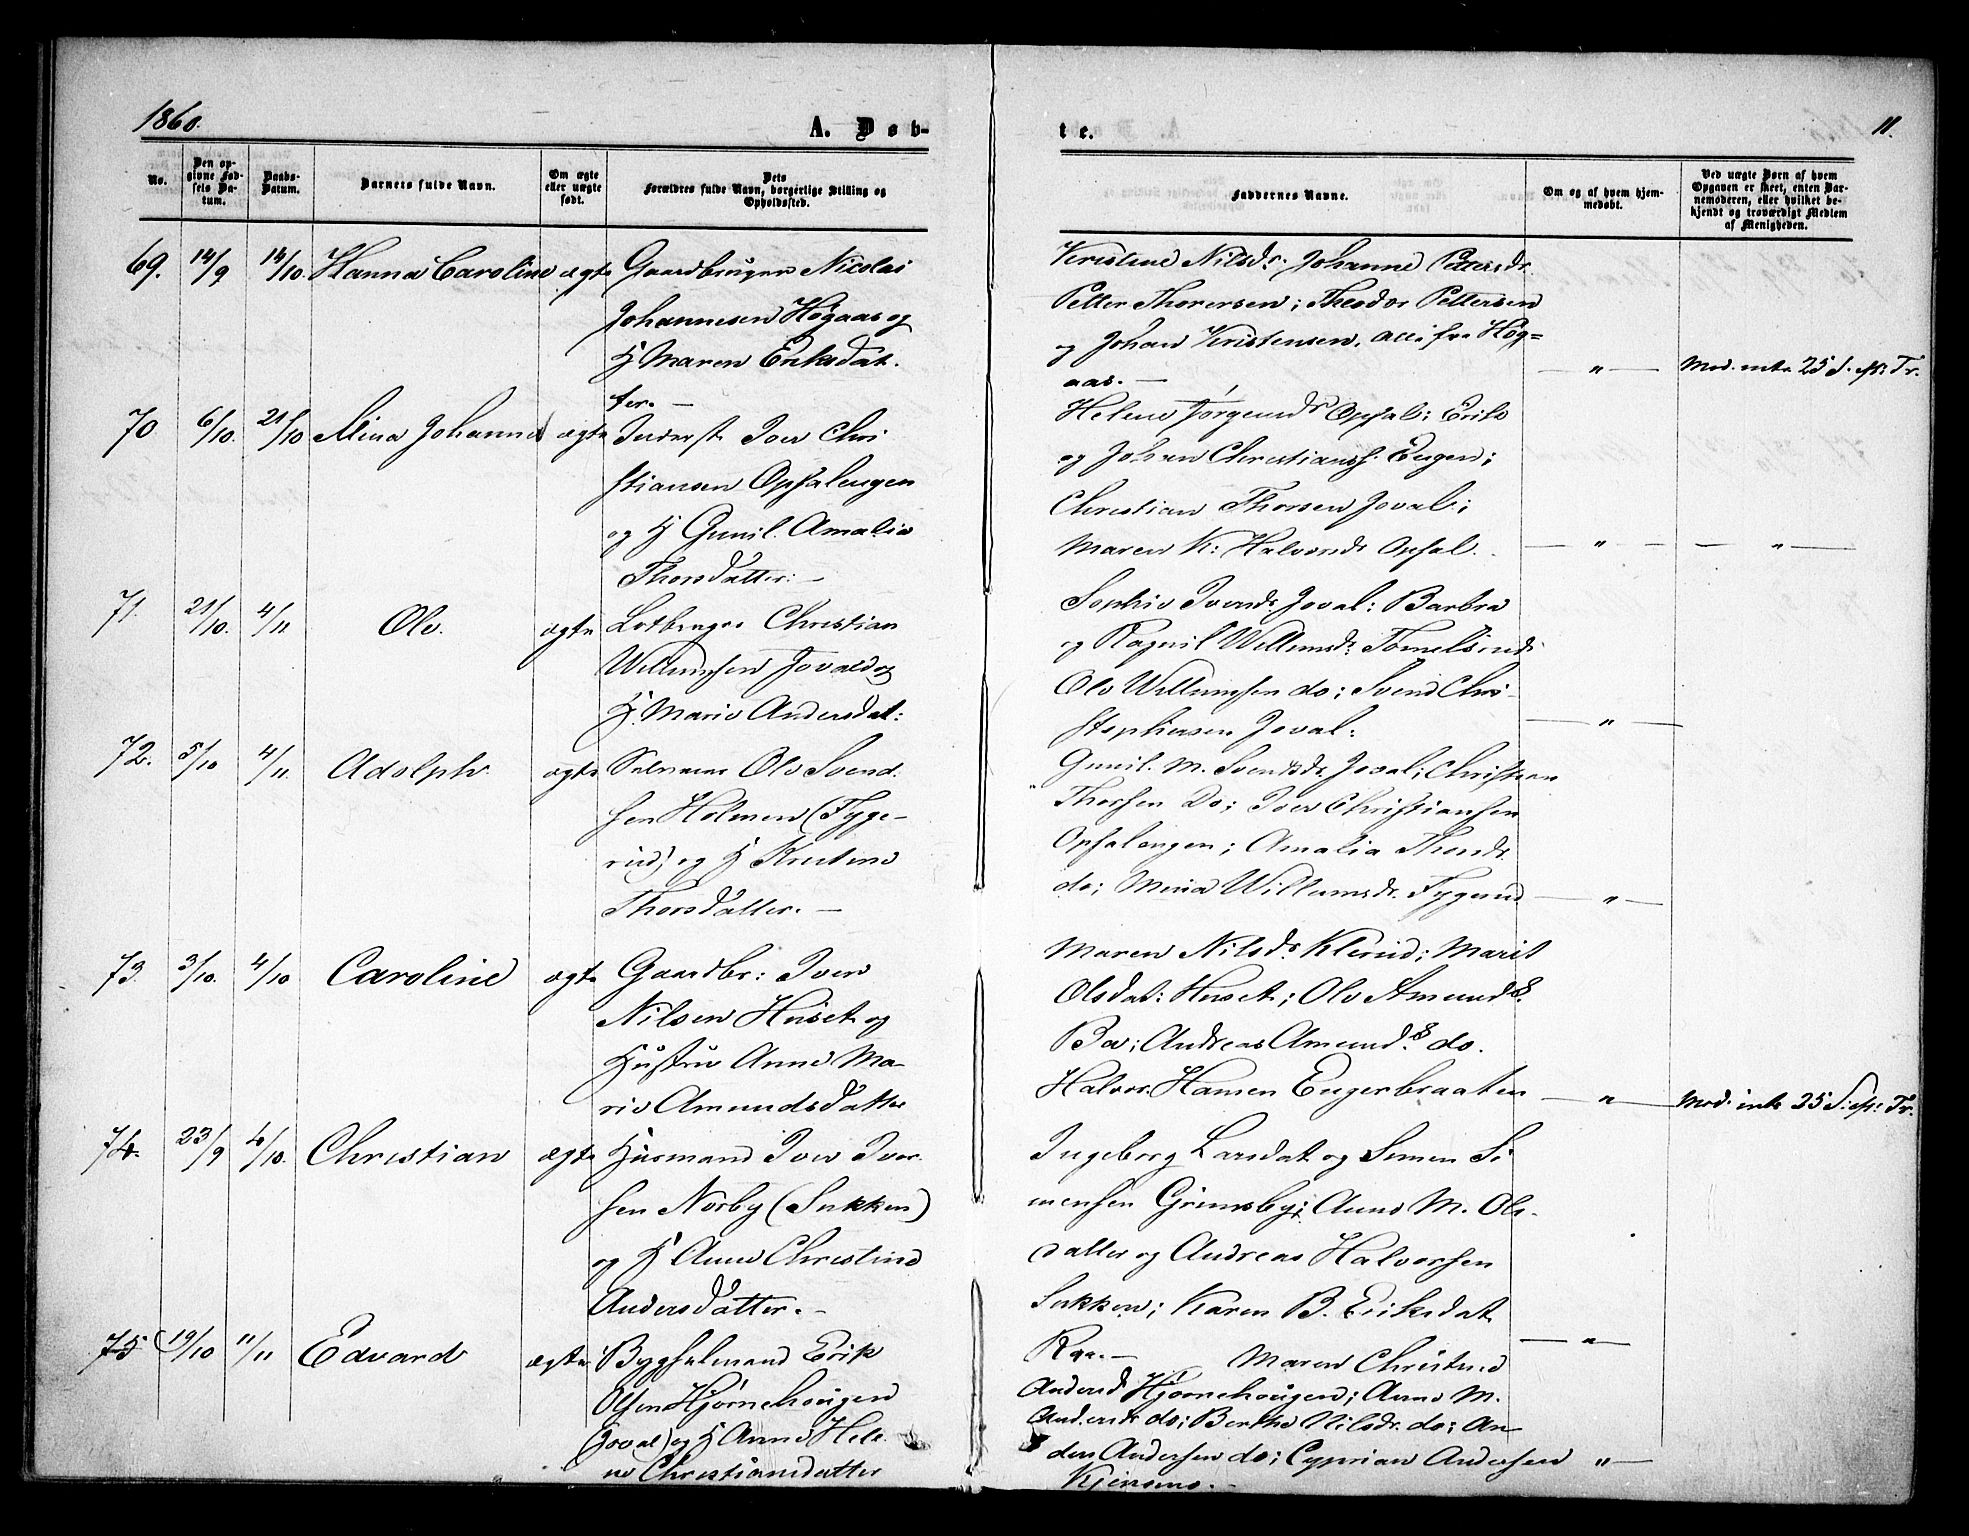 1860.
A. Døb-
te.
11.
No.
Den op-
givne Fød-
sels Da-
tum.
Daabs-
Datum.
Barnets fulde Navn.
Om ægte
eller uægte
født.
Dets
Forældres fulde Navn, borgerlige Stilling og
Opholdssted.
Faddernes Navne.
Om og af hvem hjem-
medøbt.
Ved uægte Børn af hvem
Opgaven er skeet, enten Bar-
nemoderen, eller hvilket be-
kjendt og troværdigt Medlem
af Menigheden.
69. 14/9 14/10. Hanna Caroline ægte Gaardbruger Nicolai
Johannesen Högaas og
H Maren Eriksdat-
ter. —
Kristine Nilsdr. Johanne Pettersdr.
Petter Thorersen; Theodor Pettersen
og Johan Kristensen, alle fra Hög=
aas. —
— " — Mod. intr. 25 S. eft. Tr.
70 6/10. 21/10 Mina Johanne ægte Inderst Iver Chri
stiansen Opsalengen
og H Gunil. Amalia
Thorsdatter: —
Helene Jørgensdr Opsal; Erik
og Johan Christianss. Engen;
Christian Thorsen Joval;
Maren K: Halvorsdr Opsal.
— " — — " —
71. 21/10. 4/11 Ole. ægte Lotbruger Christian
Willumsen Jovald og
H. Marie Andersdat:
Sophie Iversdr. Joval: Barbra
og Ragnil Willumsdr.
Ole Willumsen do; Svend Chri-
stophersen Joval:
— " —
72. 5/10 4/11. Adolph ægte Selveier Ole Svend.
sen Holmen (Tyge-
rud) og H Kristine
Thorsdatter. —
Gunil. M. Svendsdr. Joval; Christian
Thorsen Do; Iver Christiansen
Opsalengen; Amalia Thorsdr.
do; Mina Willumsdr. Tygerud
— " —
73. 3/10. 4/10 Caroline ægte Gaardbr: Iver
Nilsen Huset og
Hustru Anne Ma-
rie Amundsdatter
Maren Nilsdr. Klerud; Marit
Olsdat: Huset; Ole Amunds.
Bø; Andreas Amunds. do.
Halvor Hansen Engerbraaten
— " — Mod. intr. 25 S. eft. Tr.
74. 23/9 4/10. Christian ægte Husmand Iver Iver
sen Norby (Sukken)
og H Anne Christine
Andersdatter. —
Ingeborg Larsdat og Simen Si
mensen Grimsby; Anne M. Ols-
datter og Andreas Halvorsen
Sukken; Karen B. Eriksdat
Raa. —
— " —
75 19/10 11/11 Edvard ægte Bygselmand Erik
Olsen Hjörnehougen
(Joval) og H Anne Hele
ne Christiansdatter
Maren Christine
Andersd Hjörnehougen; Anne M.
Andersdr do; Berthe Nilsdr. do; An
ders Andersen do; Cyprian Andersen
— " —